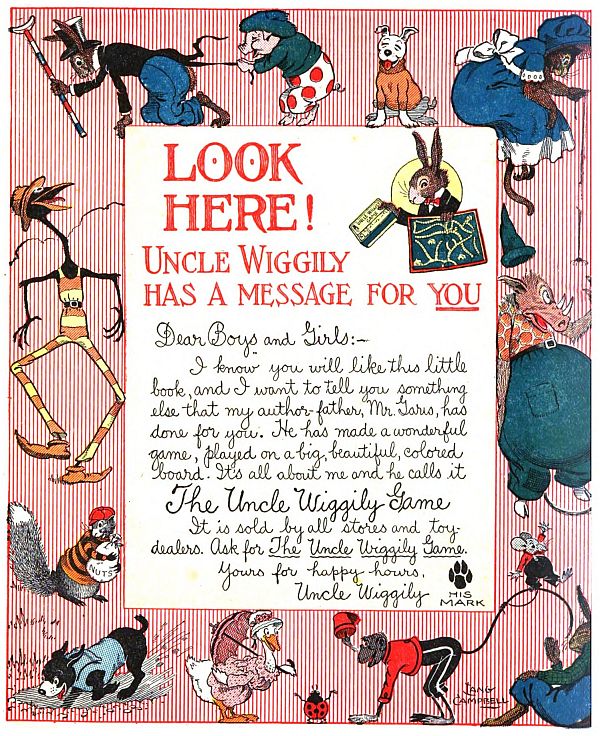 LOOK
HERE!
UNCLE WIGGILY
HAS A MESSAGE FOR YOU
Dear Boys and Girls:-
I know you will like this little
book, and I want to tell you something
else that my author-father, Mr. Garis, has
done for you. He has made a wonderful
game, played on a big, beautiful, colored
board. It's all about me and he calls it
The Uncle Wiggily Game
It is sold by all stores and toy-
dealers. Ask for The Uncle Wiggily Game.
Yours for happy hours,
Uncle Wiggily
HIS
MARK
NUTS
LANG
CAMPBELL